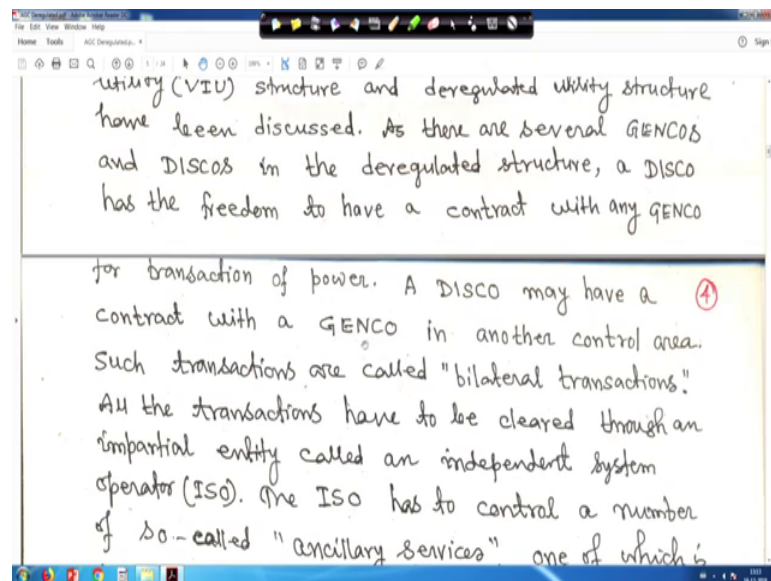 AGC Deregulated.pdf - Adobe Acrobat Reader DC
File Edit View Window Help
Home Tools AGC Deregulated.p... × Sign
utility (VIU) structure and deregulated utility structure
have been discussed. As there are several GENCOS
and DISCOS in the deregulated structure, a DISCO
has the freedom to have a contract with any GENCO
for transaction of power. A DISCO may have a ④
contract with a GENCO in another control area.
Such transactions are called "bilateral transactions."
All the transactions have to be cleared through an
impartial entity called an independent system
operator (ISO). The ISO has to control a number
of so-called "ancillary services" one of which is